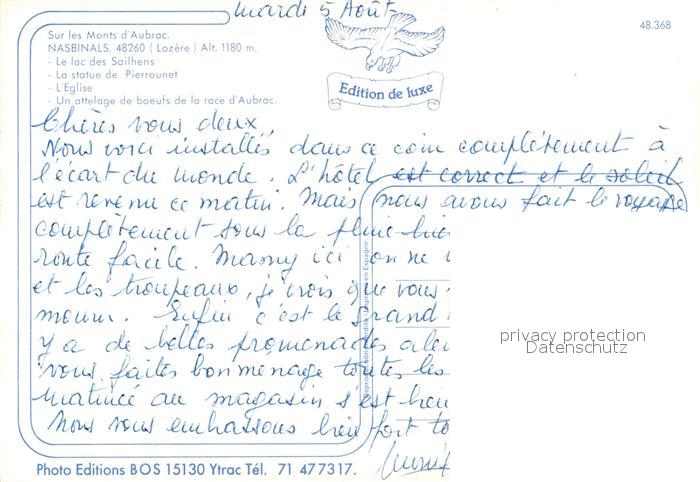 mardi 5 Août
48.368
Sur les Monts d'Aubrac.
NASBINALS. 48260 ( Lozère ) Alt. 1180 m.
- Le lac des Sailhens
- La statue de Pierrounet
- L'Eglise
- Un attelage de boeufs de la race d'Aubrac.
Edition de luxe
Chères vous deux,
Nous voici installés dans ce coin complètement à
l'écart du monde. L'hôtel est correct et le soleil
est revenu ce matin. Mais nous avons fait le voyage
complètement sous la pluie
route facile. ici on ne
et les troupeaux, je crois que vous
mourir. Enfin c'est le grand
y a de belles promenades
vous faites bon ménage toutes les
matinée au magasin s'est
Nous vous embrassons bien fort
privacy protection
Datenschutz
Photo Editions BOS 15130 Ytrac Tél. 71 477317.